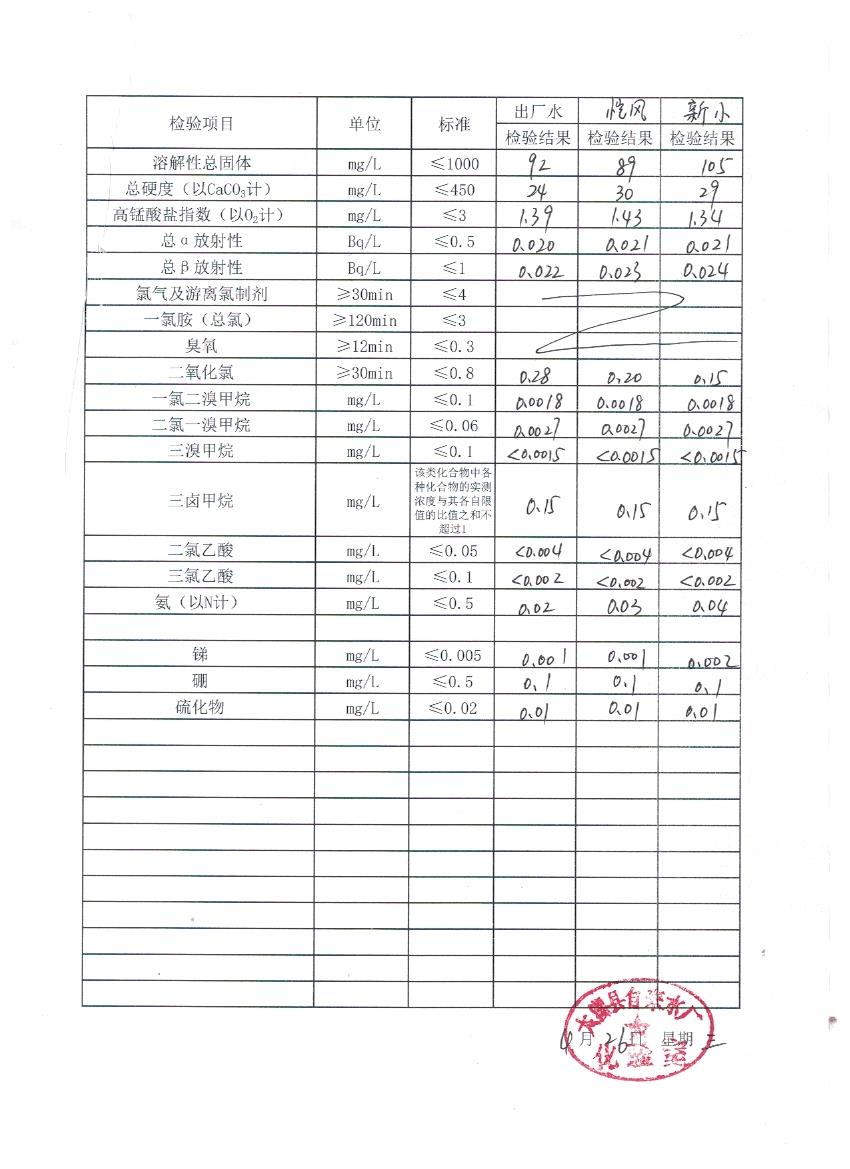 检验项目 单位 标准 出厂水 悦风 新小
检验结果 检验结果 检验结果
溶解性总固体 mg/L ≤1000 92 89 105
总硬度（以CaCO₃计） mg/L ≤450 24 30 29
高锰酸盐指数（以O₂计） mg/L ≤3 1.39 1.43 1.34
总α放射性 Bq/L ≤0.5 0.020 0.021 0.021
总β放射性 Bq/L ≤1 0.022 0.023 0.024
氯气及游离氯制剂 ≥30min ≤4
一氯胺（总氯） ≥120min ≤3
臭氧 ≥12min ≤0.3
二氧化氯 ≥30min ≤0.8 0.28 0.20 0.15
一氯二溴甲烷 mg/L ≤0.1 0.0018 0.0018 0.0018
二氯一溴甲烷 mg/L ≤0.06 0.0027 0.0027 0.0027
三溴甲烷 mg/L ≤0.1 <0.0015 <0.0015 <0.0015
三卤甲烷 mg/L 该类化合物中各
种化合物的实测
浓度与其各自限
值的比值之和不
超过1
0.15 0.15 0.15
二氯乙酸 mg/L ≤0.05 <0.004 <0.004 <0.004
三氯乙酸 mg/L ≤0.1 <0.002 <0.002 <0.002
氨（以N计） mg/L ≤0.5 0.02 0.03 0.04
锑 mg/L ≤0.005 0.001 0.001 0.002
硼 mg/L ≤0.5 0.1 0.1 0.1
硫化物 mg/L ≤0.02 0.01 0.01 0.01
县自来水厂
4月26日 星期三
化验室